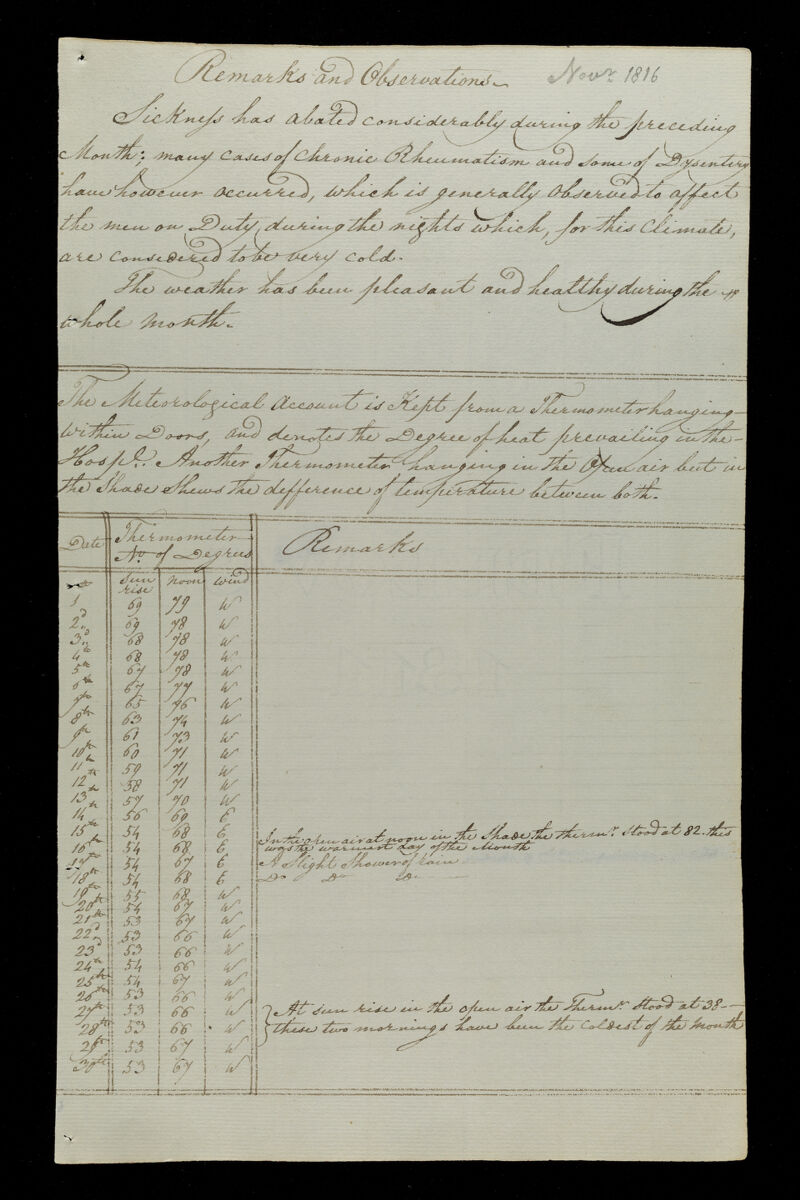 Remarks and Observations Novr. 1816
Sickness has abated considerably during the preceding
Month; many cases of Chronic Rheumatism and some of Dysentery
have however occurred, which is generally Observed to affect
the men on Duty, during the nights which, for this Climate,
are considered to be very cold.
The weather has been pleasant and healthy during the
whole month.
The Meteorological Account is Kept from a Thermometer hanging
within Doors, and denotes the Degree of heat prevailing in the
Hospl. Another Thermometer hanging in the Open air but in
the Shade Shews the defference of temperature between both.
Date Thermometer No. of Degrees Remarks
Sun rise noon wind
1 69 79 W
2d 69 78 W
3d 68 78 W
4th 68 78 W
5th 67 78 W
6th 67 77 W
7th 65 76 W
8th 63 74 W
9th 61 73 W
10th 60 71 W
11th 59 71 W
12th 58 71 W
13th 57 70 W
14th 56 69 E
15th 54 68 E In the open air at noon in the Shade the thermr. Stood at 82. this
16th 54 68 E was the warmest day of the Month
17th 54 67 E A Slight Shower of rain
18th 54 68 E Do Do Do
19th 55 68 W
20th 54 67 W
21st 53 67 W
22d 53 66 W
23d 53 66 W
24th 54 66 W
25th 54 67 W
26th 53 66 W
27th 53 66 W At sun rise in the open air the Thermr. stood at 38
28th 53 66 W these two mornings have been the coldest of the month
29th 53 67 W
30th 53 67 W